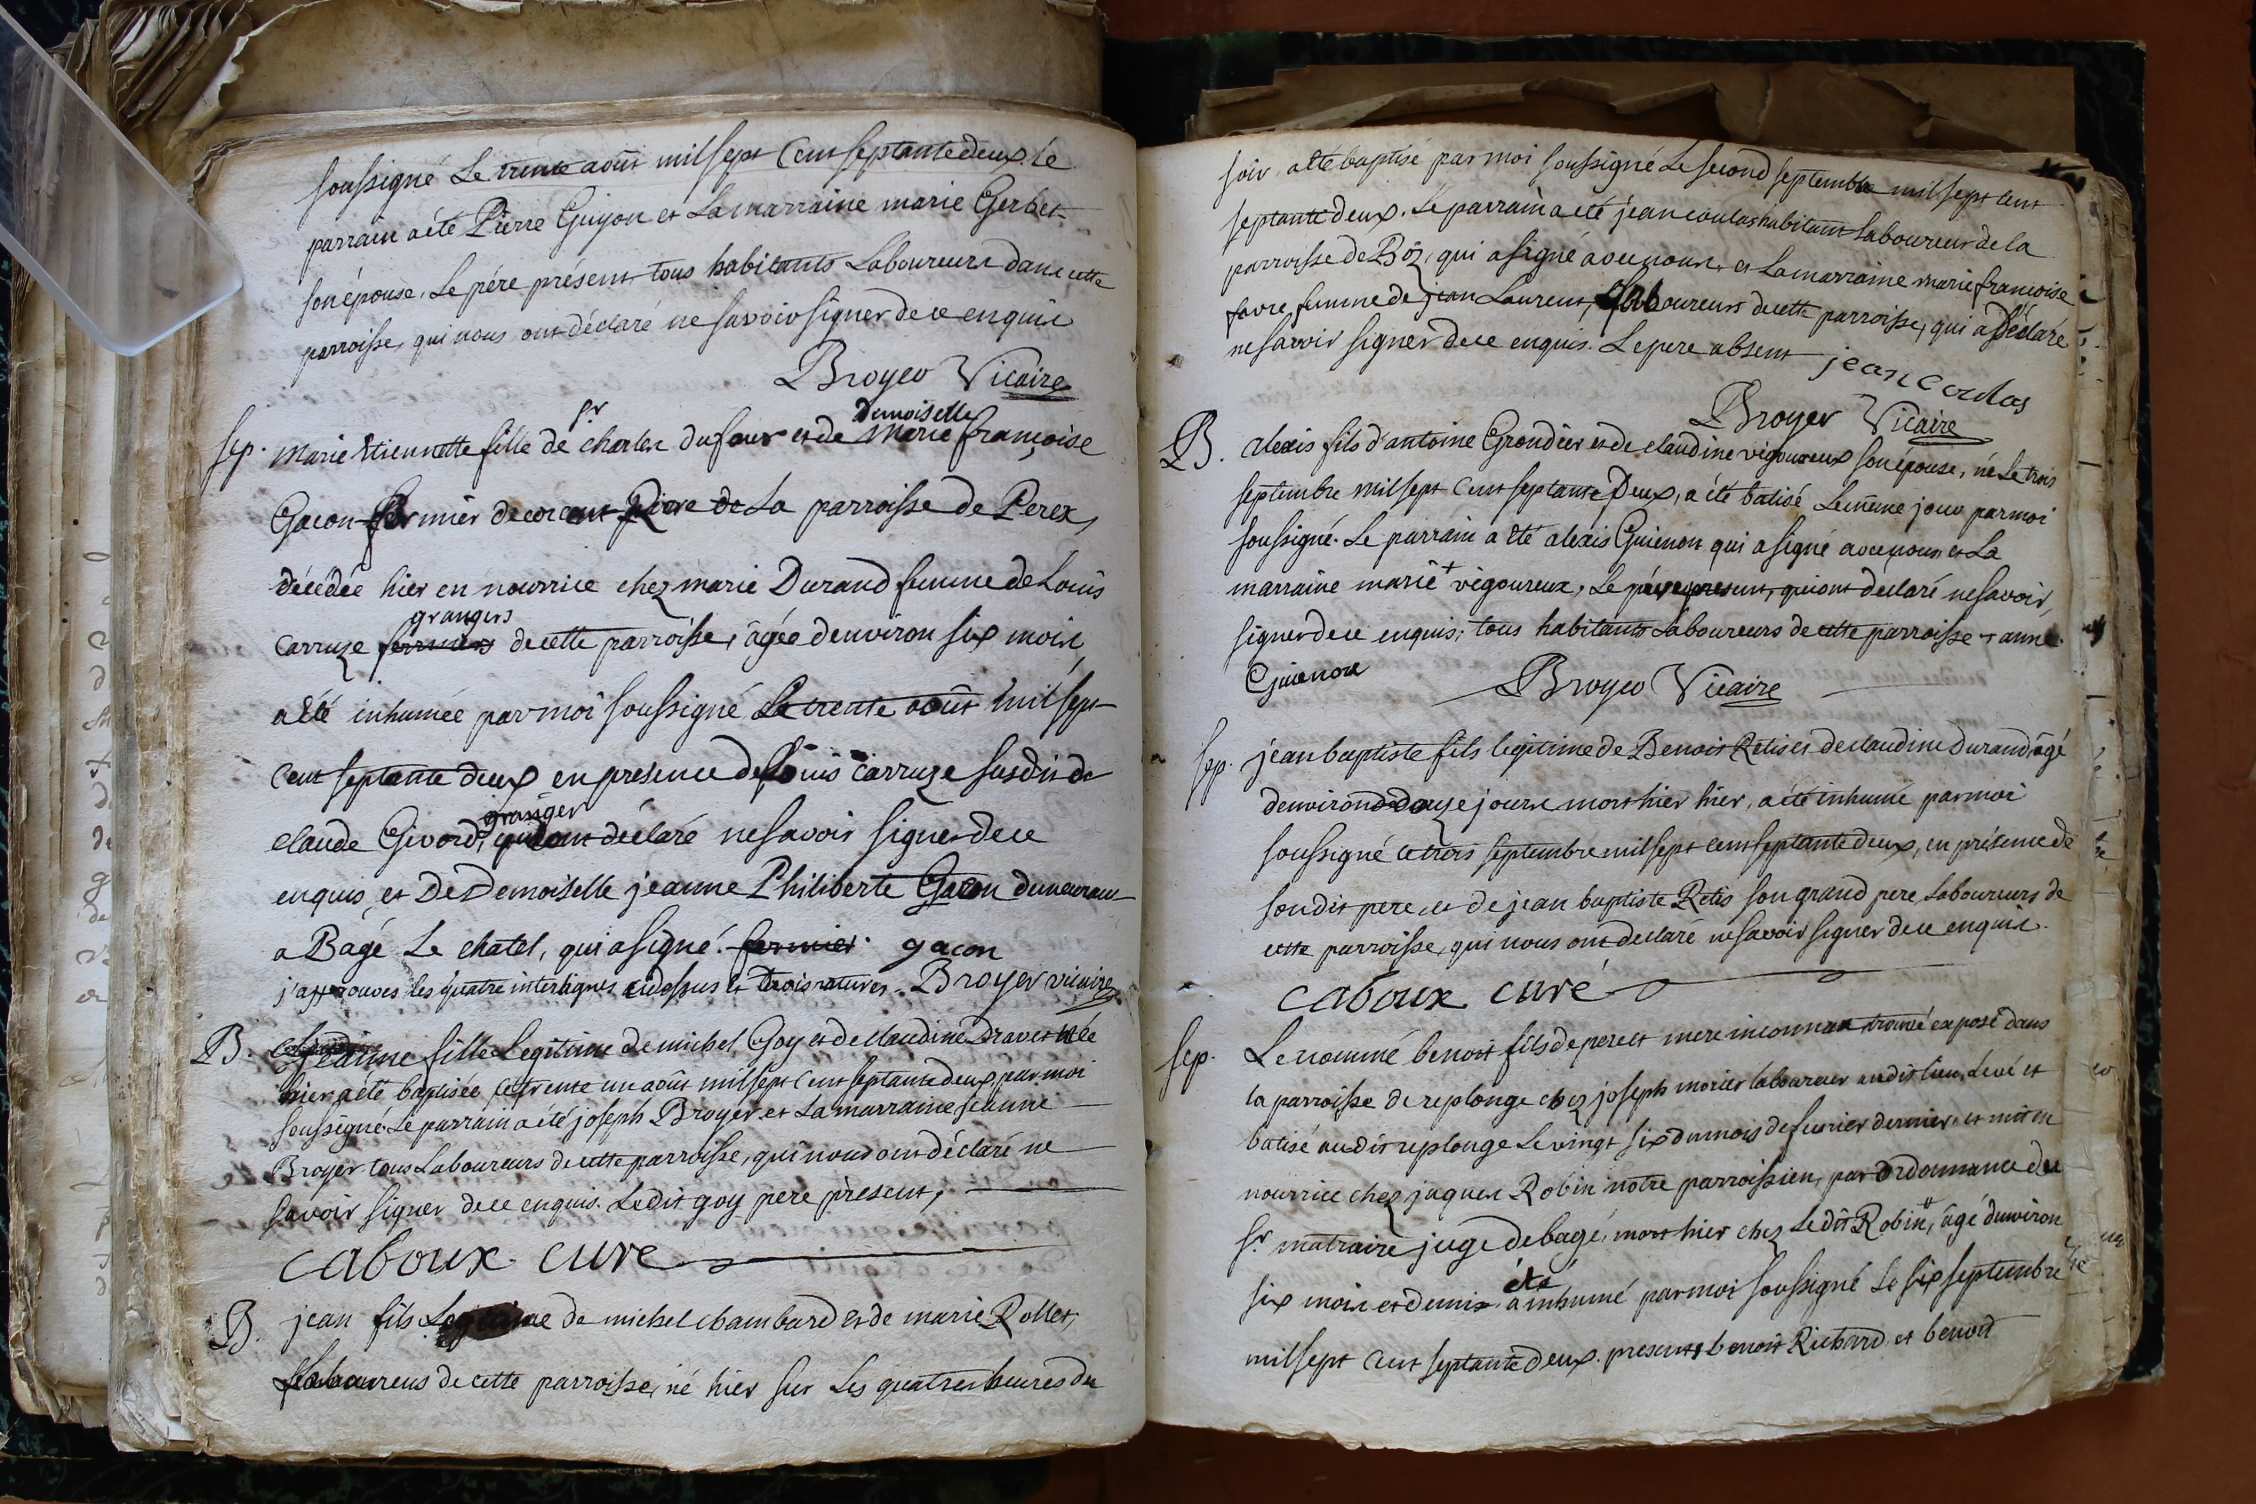 soussigné Le trente août mil sept Cent septante deux. le
parrain a été Pierre Guyon et La marraine marie Gerbet
son épouse. Le pére présent, tous habitants Laboureurs dans cette
parroisse, qui nous ont déclaré ne savoir signer de ce enquis
Broyer Vicaire
sep. Marie Etiennette fille de sr charles dufour et de demoiselle Marie françoise
Gacon fermier de la parroisse de Perex,
décédée hier en nourrice chez marie Durand femme de Louis
carruze fermiers grangers de cette parroisse, âgée d'environ six mois,
a été inhumée par moi soussigné Le trente août mil sept
cent septante deux en presence de Louis carruze susdit de
claude Givord, granger qui ont déclaré ne savoir signer de ce
enquis, et De Demoiselle jeanne Philiberte Gacon demeurant
a Bagé Le chatel, qui a signé. fermier. gacon
j'approuves les quatre interlignes cidessus et trois ratures. Broyer vicaire
B. Jeanne fille Legitime de michel Goy et de claudine Dravet née
hier a été baptisée ce trente un août mil sept cent septante deux, par moi
soussigné. Le parrain a été joseph Broyer et La marraine jeanne
Broyer tous Laboureurs de cette parroisse, qui nous ont déclaré ne
savoir signer de ce enquis. Ledit goy pere present,
caboux curé
B. jean fils Legitime de michel chambard et de marie Rollet,
Laboureurs de cette parroisse, né hier sur Les quatres heures du
soir, a été baptisé par moi soussigné Le second septembre mil sept cent
septante deux. Le parrain a été jean coulas habitant Laboureur de la
parroisse de Böz, qui a signé avec nous, et La marraine marie françoise
favre femme de jean Laurent, Laboureurs de cette parroisse, qui a Déclaré
ne savoir signer de ce enquis. Le pere absent jean coulas
Broyer Vicaire
B. Alexis fils d'antoine Grondier et de claudine vigoureux son épouse, né Le trois
septembre mil sept Cent septante Deux, a été batisé Le même jour par moi
soussigné. Le parrain a été alexis Guienon qui a signé avec nous et La
marraine marie + vigoureux, Le pére present, qui ont declaré ne savoir
signer de ce enquis, tous habitants Laboureurs de cette parroisse + anne.
Guienon Broyer Vicaire
sep. jean baptiste fils legitime de Benoit Retis et de claudine durand âgé
d'environ douze jours mort hier hier, a été inhumé par moi
soussigné ce trois septembre mil sept cent septante deux, en présence de
son dit pere, et de jean baptiste Retis son grand pere, Laboureurs de
cette parroisse, qui nous ont declaré ne savoir signer de ce enquis.
caboux curé
sep. Le nommé benoit fils de pere et mere inconnus trouvé exposé dans
la parroisse de replonge chez joseph morier laboureur au dit lieu, Levé et
batisé au dit replonge Le vingt six du mois de fevrier dernier, et mis en
nourrice chez jaques Robin notre parroissien, par ordonnance du
sr matraire juge de bagé, mort hier chez Le dit Robin, âgé d'environ
six mois et demi a été inhumé par moi soussigné Le six septembre
mil sept cent septante deux. presents benoit Richard et benoit